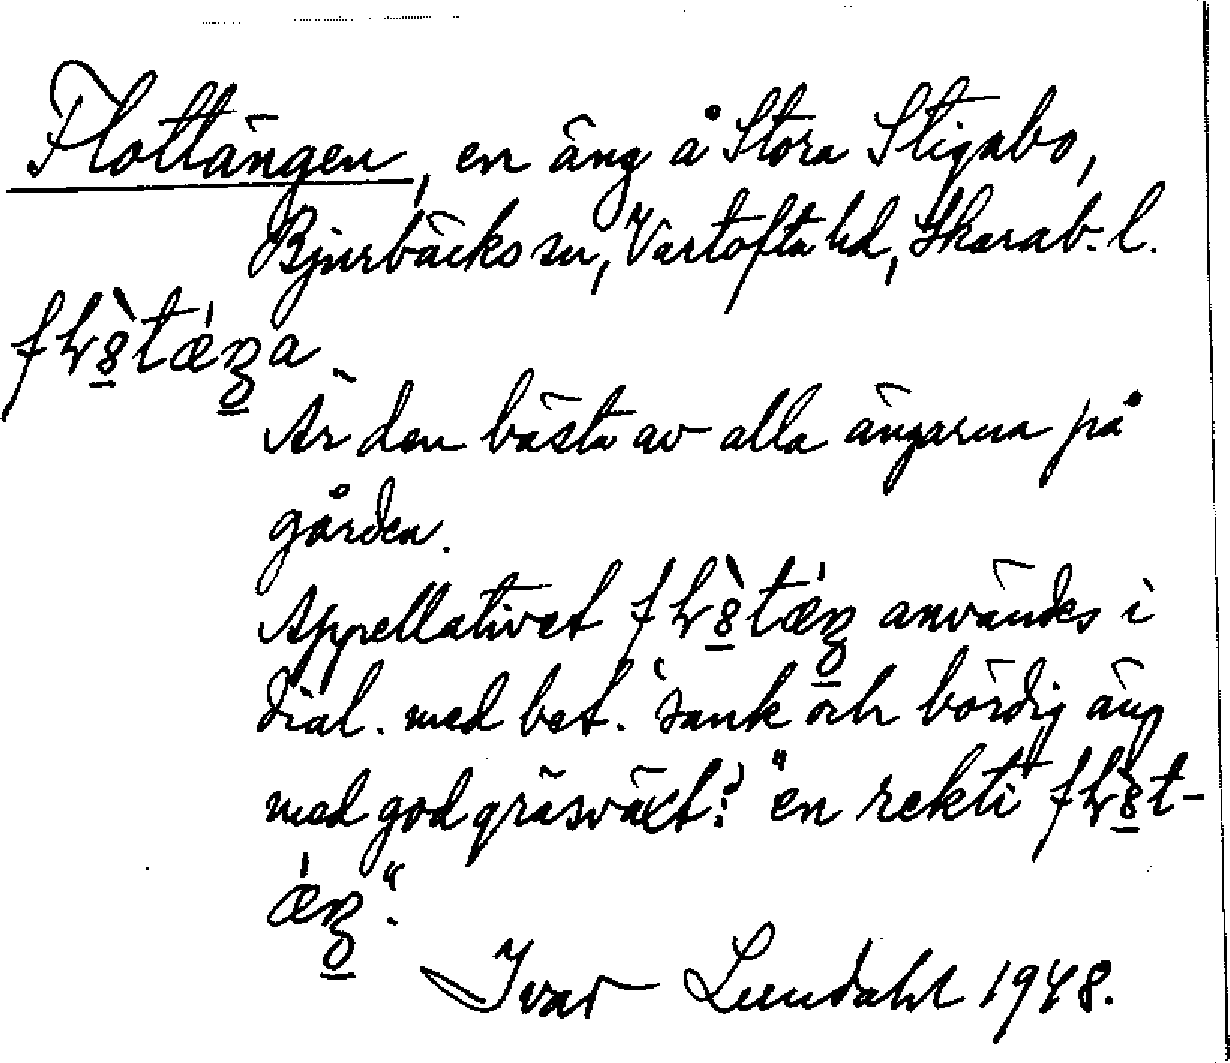 Flottängen, en äng å Stora Stigabo,
Bjurbäcks sn, Vartofta hd, Skarab. l.
är den bästa av alla ängarna på
gården.
Appellativet användes i
dial. med bet. 'sank och bördig äng
med god gräsväxt': "en rekti
Ivar Lundahl 1948.